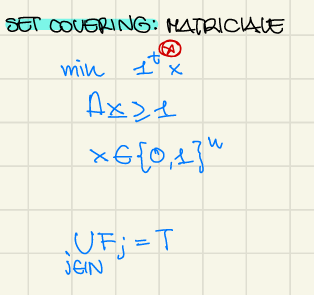 SET COVERING: MATRICIALE
min 1ᵗ x
Ax ≥ 1
x ∈ {0,1}ⁿ
∪ Fj = T
j∈N